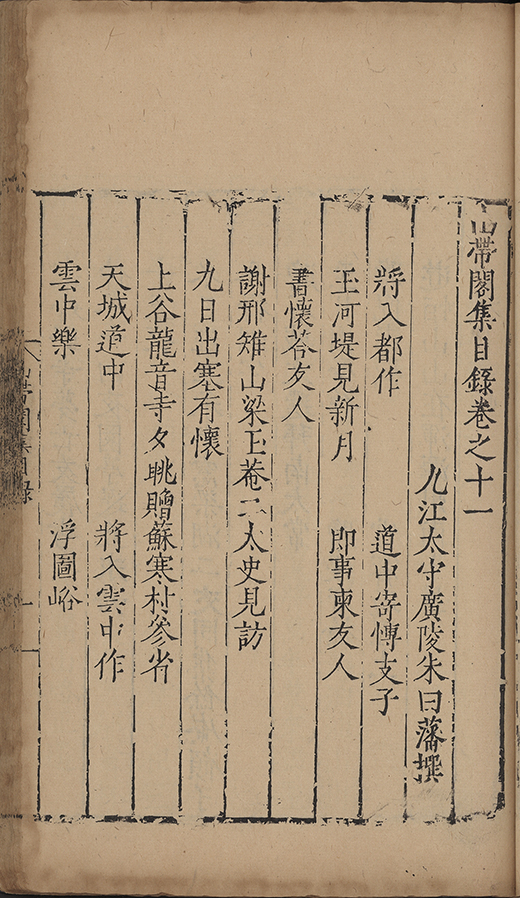 山帶閣集目錄卷之十一
九江太守廣陵朱曰藩撰
將入都作　道中寄愽支子
玉河堤見新月　即事柬友人
書懷荅友人
謝邢雉山梁玉菴二太史見訪
九日出塞有懷
上谷龍音寺夕眺贈蘇寒村參省
天城道中　將入雲中作
雲中樂　浮圖峪
山帶閣集目錄